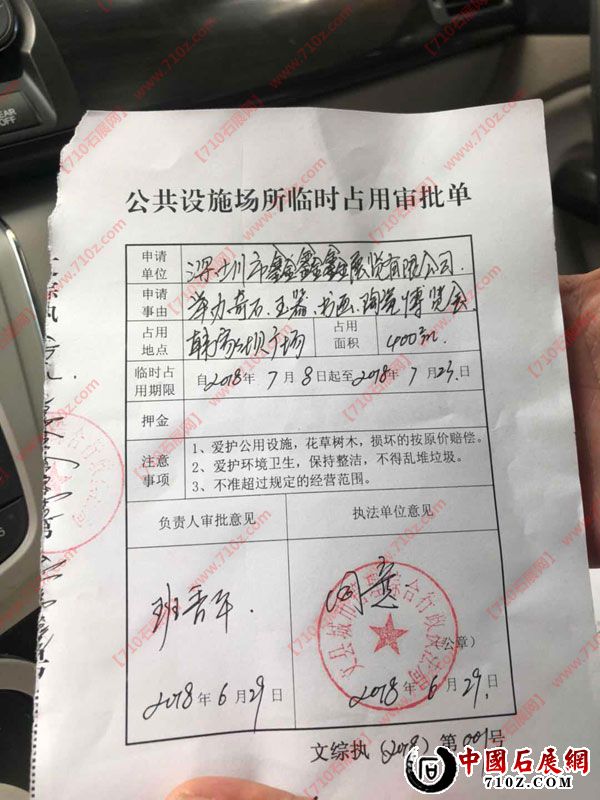 公共设施场所临时占用审批单
申请单位 深圳市鑫鑫鑫展览有限公司.
申请事由 举办奇石.玉器.书画.陶瓷博览会.
占用地点 广场 占用面积 400
临时占用期限 自2018年7月8日起至2018年7月23日
押金
注意事项
1、爱护公用设施，花草树木，损坏的按原价赔偿。
2、爱护环境卫生，保持整洁，不得乱堆垃圾。
3、不准超过规定的经营范围。
负责人审批意见 执法单位意见
同意
文县城市管理综合行政执法局
（公章）
2018年6月29日 2018年6月29日
文综执（2018）第001号
文综执
【710石展网】 www.710z.com
中國石展網
710Z.COM